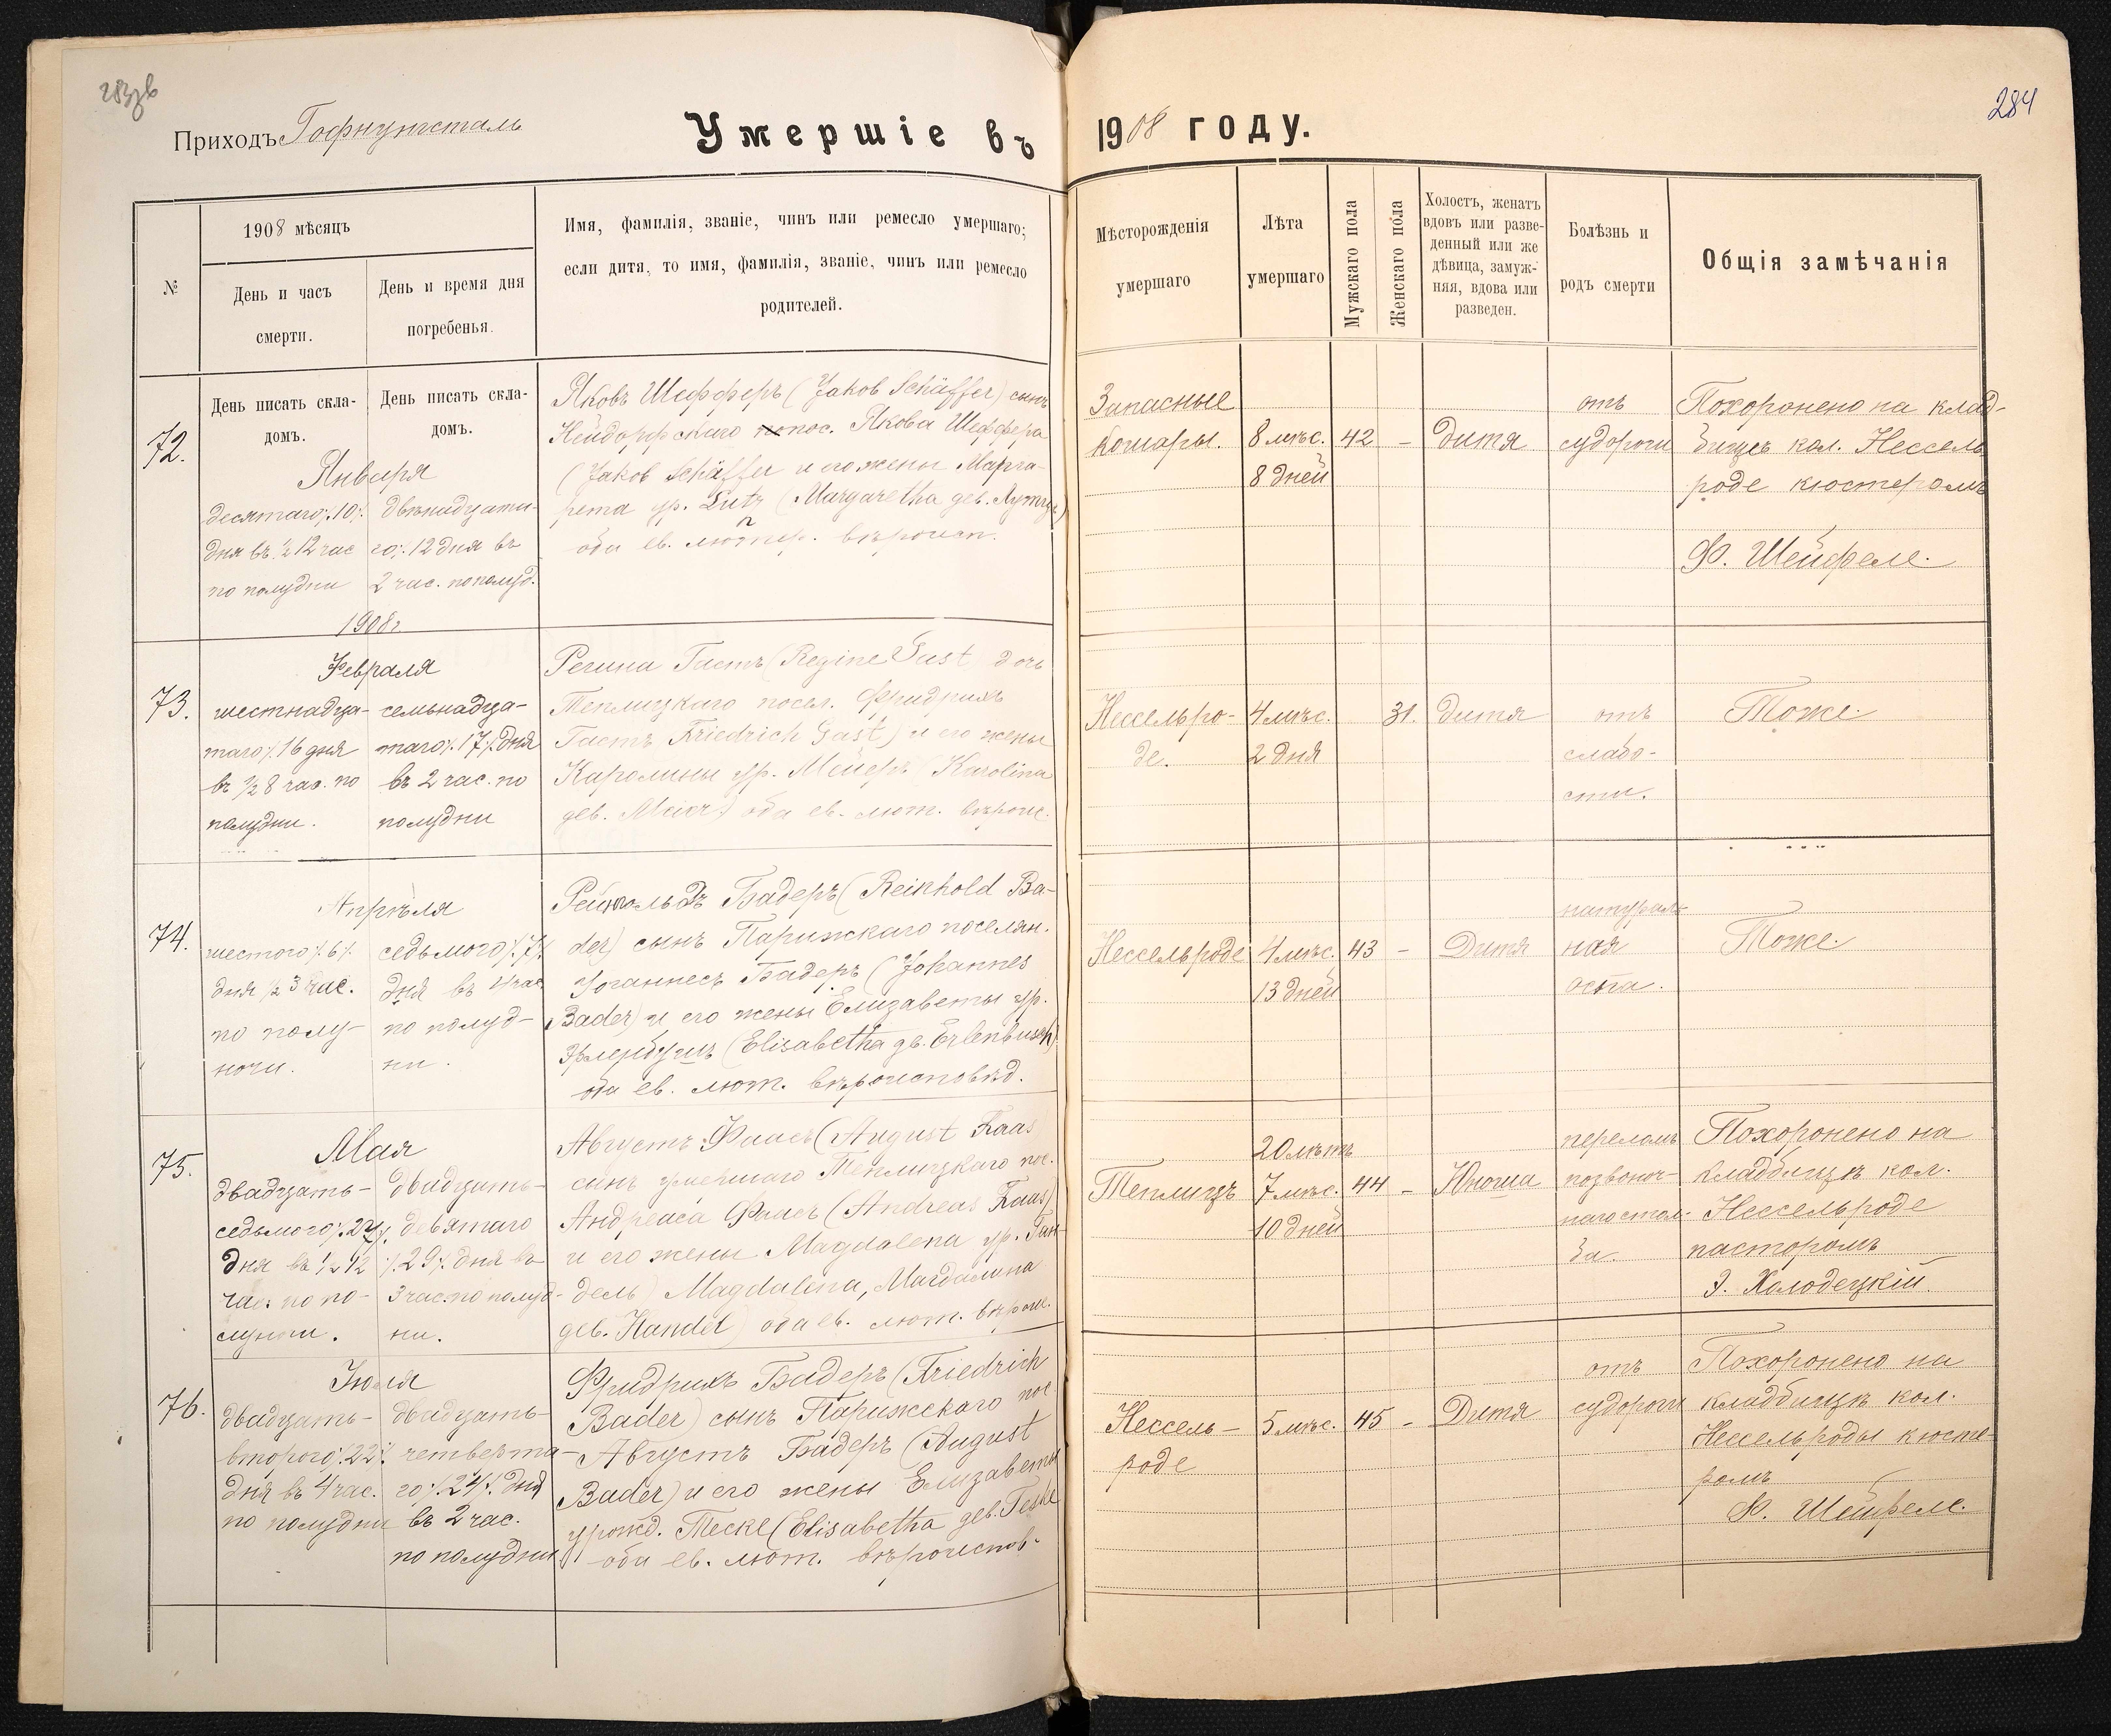 284
Приходъ Гофнунгсталь
Умершіе въ 1908 году.
№
1908 мѣсяцъ
День и часъ
смерти.
День и время дня
погребенья.
Имя, фамилія, званіе, чинъ или ремесло умершаго;
если дитя, то имя, фамилія, званіе, чинъ или ремесло
родителей.
Мѣсторожденія
умершаго
Лѣта
умершаго
Мужскаго пола
Женскаго пола
Холостъ, женатъ
вдовъ или разве-
денный или же
дѣвица, замуж-
няя, вдова или
разведен.
Болѣзнь и
родъ смерти
Общія замѣчанія
День писать скла-
домъ.
День писать скла-
домъ.
72.
Января
десятаго ⁒10⁒
дня въ ½ 12 час
по полудни
двѣнадцата-
го ⁒12 дня въ
2 час. пополуд.
1908г
Яковъ Шефферъ (Jakob Schäffer) сынъ
Нейдорфскаго пос. Якова Шеффера
(Jakob Schäffer и его жены Марга-
рета ур. Lutz (Margaretha geb. Лутцъ)
оба ев. лютер. вѣроисп.
Запасные
кошары.
8 мѣс.
8 дней
42
–
Дитя
отъ
судороги
Похоронено на клад-
бищѣ кол. Нессель
роде кюстеромъ
Ф. Шейфеле.
73.
Февраля
шестнадца-
таго ⁒16 дня
въ ½ 8 час. по
полудни.
семьнадца-
таго ⁒17⁒ дня
въ 2 час. по
полудни
Регина Гастъ (Regine Gast дочь
Теплицкаго посел. Фридрихъ
Гастъ Friedrich Gast) и его жены
Каролины ур. Мейеръ (Karolina
geb. Maier) оба ев. лют. вѣроис.
Нессельро-
де.
4 мѣс.
2 дня
31.
Дитя
отъ
слабо-
сти.
Тоже.
74.
Апрѣля
шестого ⁒6⁒
дня ½ 3 час.
по полу-
ночи.
седьмого ⁒7⁒
дня въ 4 час
по полуд-
ни.
Рейнгольдъ Бадеръ (Reinhold Ba-
der) сынъ Парижскаго поселян.
Іоганнесъ Бадеръ (Johannes
Bader) и его жены Елизаветы ур.
Эрленбушъ (Elisabetha geb. Erlenbusch)
оба ев. лют. вѣроисповѣд.
Нессельроде
4 мѣс.
13 дней
43
–
Дитя
натураль
ная
оспа.
Тоже.
75.
Мая
двадцать-
седьмого ⁒27⁒
дня въ ½ 12
час. по по-
луночи.
двадцать-
девятаго
⁒29⁒ дня въ
3 час. по полуд-
ни.
Августъ Фаасъ (August Faas
сынъ умершаго Теплицкаго пос.
Андреаса Фаасъ (Andreas Faas)
и его жены Magdalena ур. Ган-
дель) Magdalena, Магдалина
geb. Handel) оба ев. лют. вѣроис.
Теплицъ
20 лѣтъ
7 мѣс.
10 дней
44
–
Юноша
переломъ
позвоноч-
наго стол-
ба.
Похоронено на
кладбищѣ кол.
Нессельроде
пасторомъ
Э. Холодецкій.
76.
Іюля
двадцать-
второго ⁒22⁒
дня въ 4 час.
по полудни
двадцать-
четверта-
го ⁒24⁒ дня
въ 2 час.
по полудни
Фридрихъ Бадеръ (Friedrich
Bader) сынъ Парижскаго пос.
Августъ Бадеръ (August
Bader) и его жены Елизаветы
урожд. Теске (Elisabetha geb. Teske
оба ев. лют. вѣроисповѣ.
Нессель-
роде
5 мѣс.
45
–
Дитя
отъ
судороги
Похоронено на
кладбищѣ кол.
Нессельроды кюсте-
ромъ
Ф. Шейфеле.